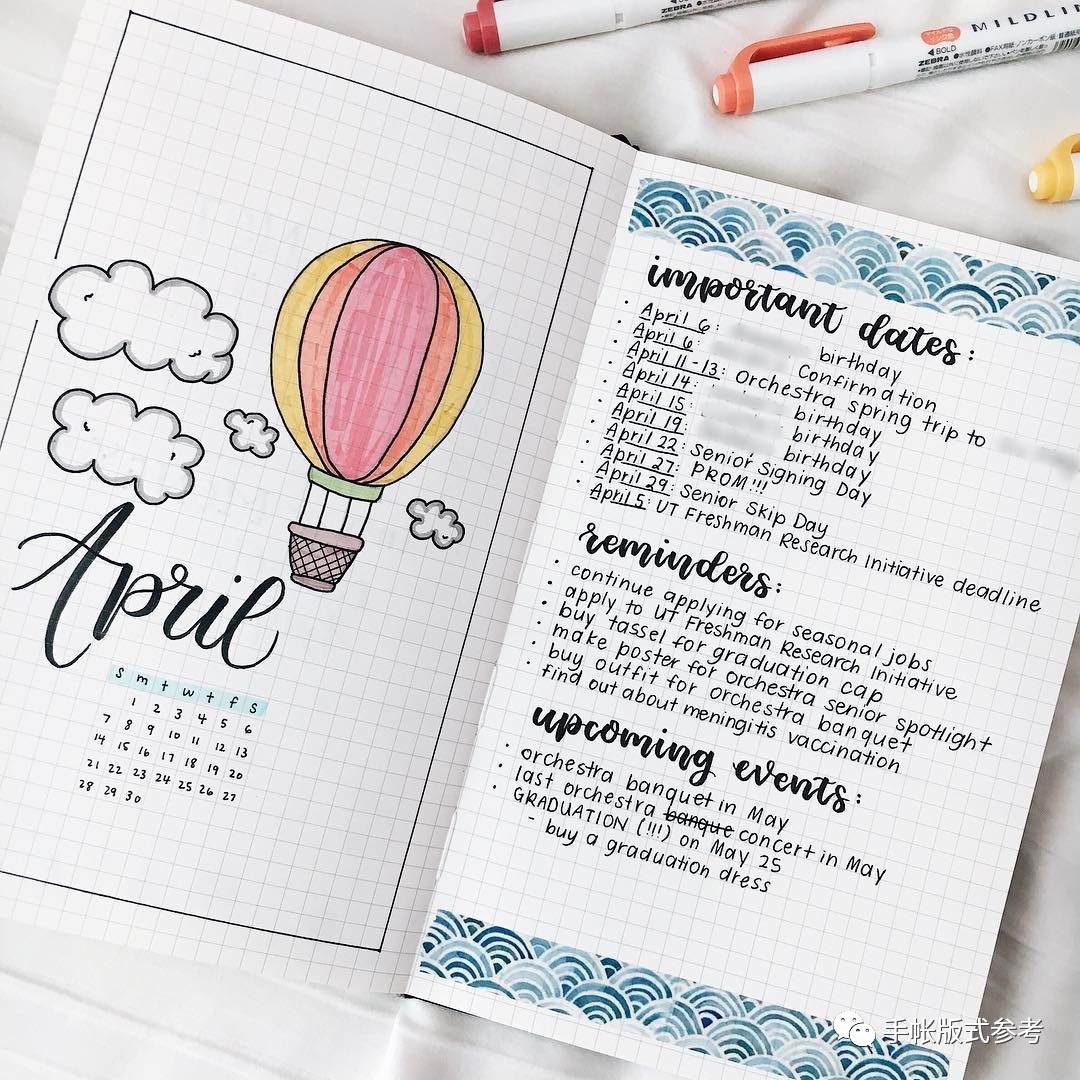 MILDLIN
マイルドな
インク色
◀BOLD
ZEBRA
ZEBRA
April
S m t w t f s
1 2 3 4 5 6
7 8 9 10 11 12 13
14 15 16 17 18 19 20
21 22 23 24 25 26 27
28 29 30
important dates:
· April 6: birthday
· April 6: Confirmation
· April 11-13: Orchestra spring trip to
· April 14: birthday
· April 15: birthday
· April 19: birthday
· April 22: Senior Signing Day
· April 27: PROM!!!
· April 29: Senior Skip Day
· April 5: UT Freshman Research Initiative deadline
reminders:
· continue applying for seasonal jobs
· apply to UT Freshman Research Initiative
· buy tassel for graduation cap
· make poster for orchestra senior spotlight
· buy outfit for orchestra banquet
· find out about meningitis vaccination
upcoming events:
· orchestra banquet in May
· last orchestra banque concert in May
· GRADUATION (!!!) on May 25
- buy a graduation dress
手帐版式参考